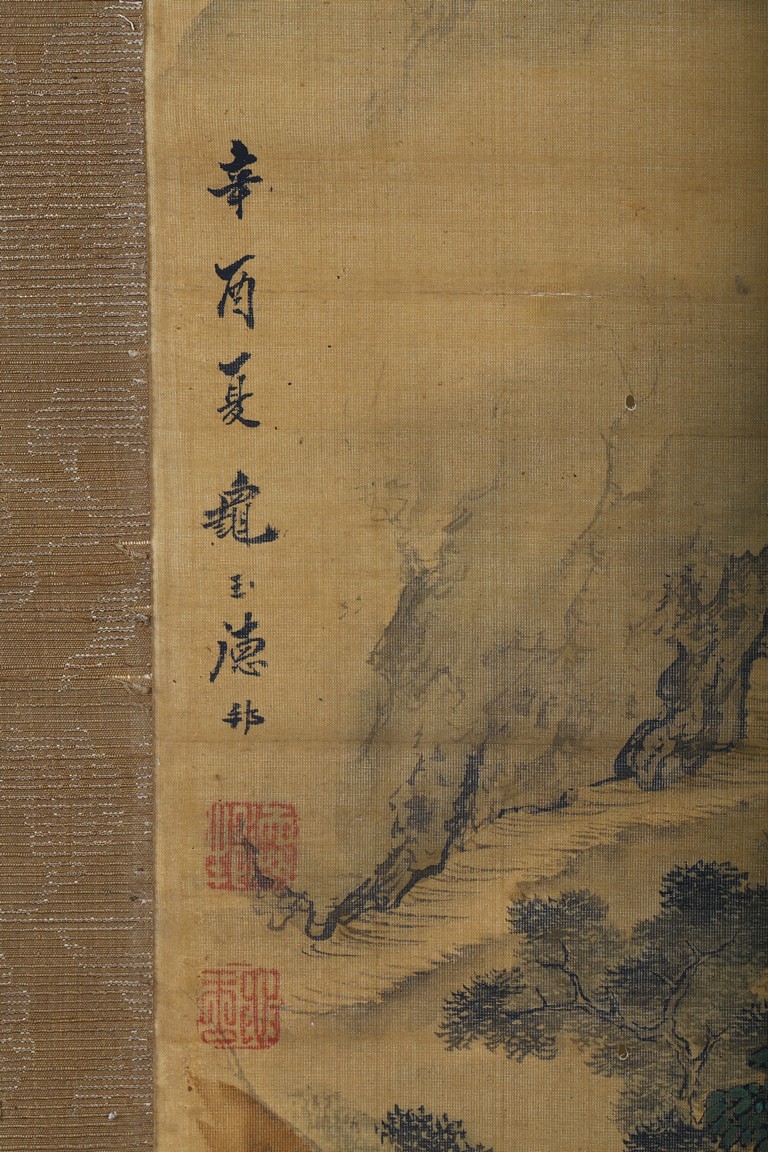 辛酉夏龜玉德邦